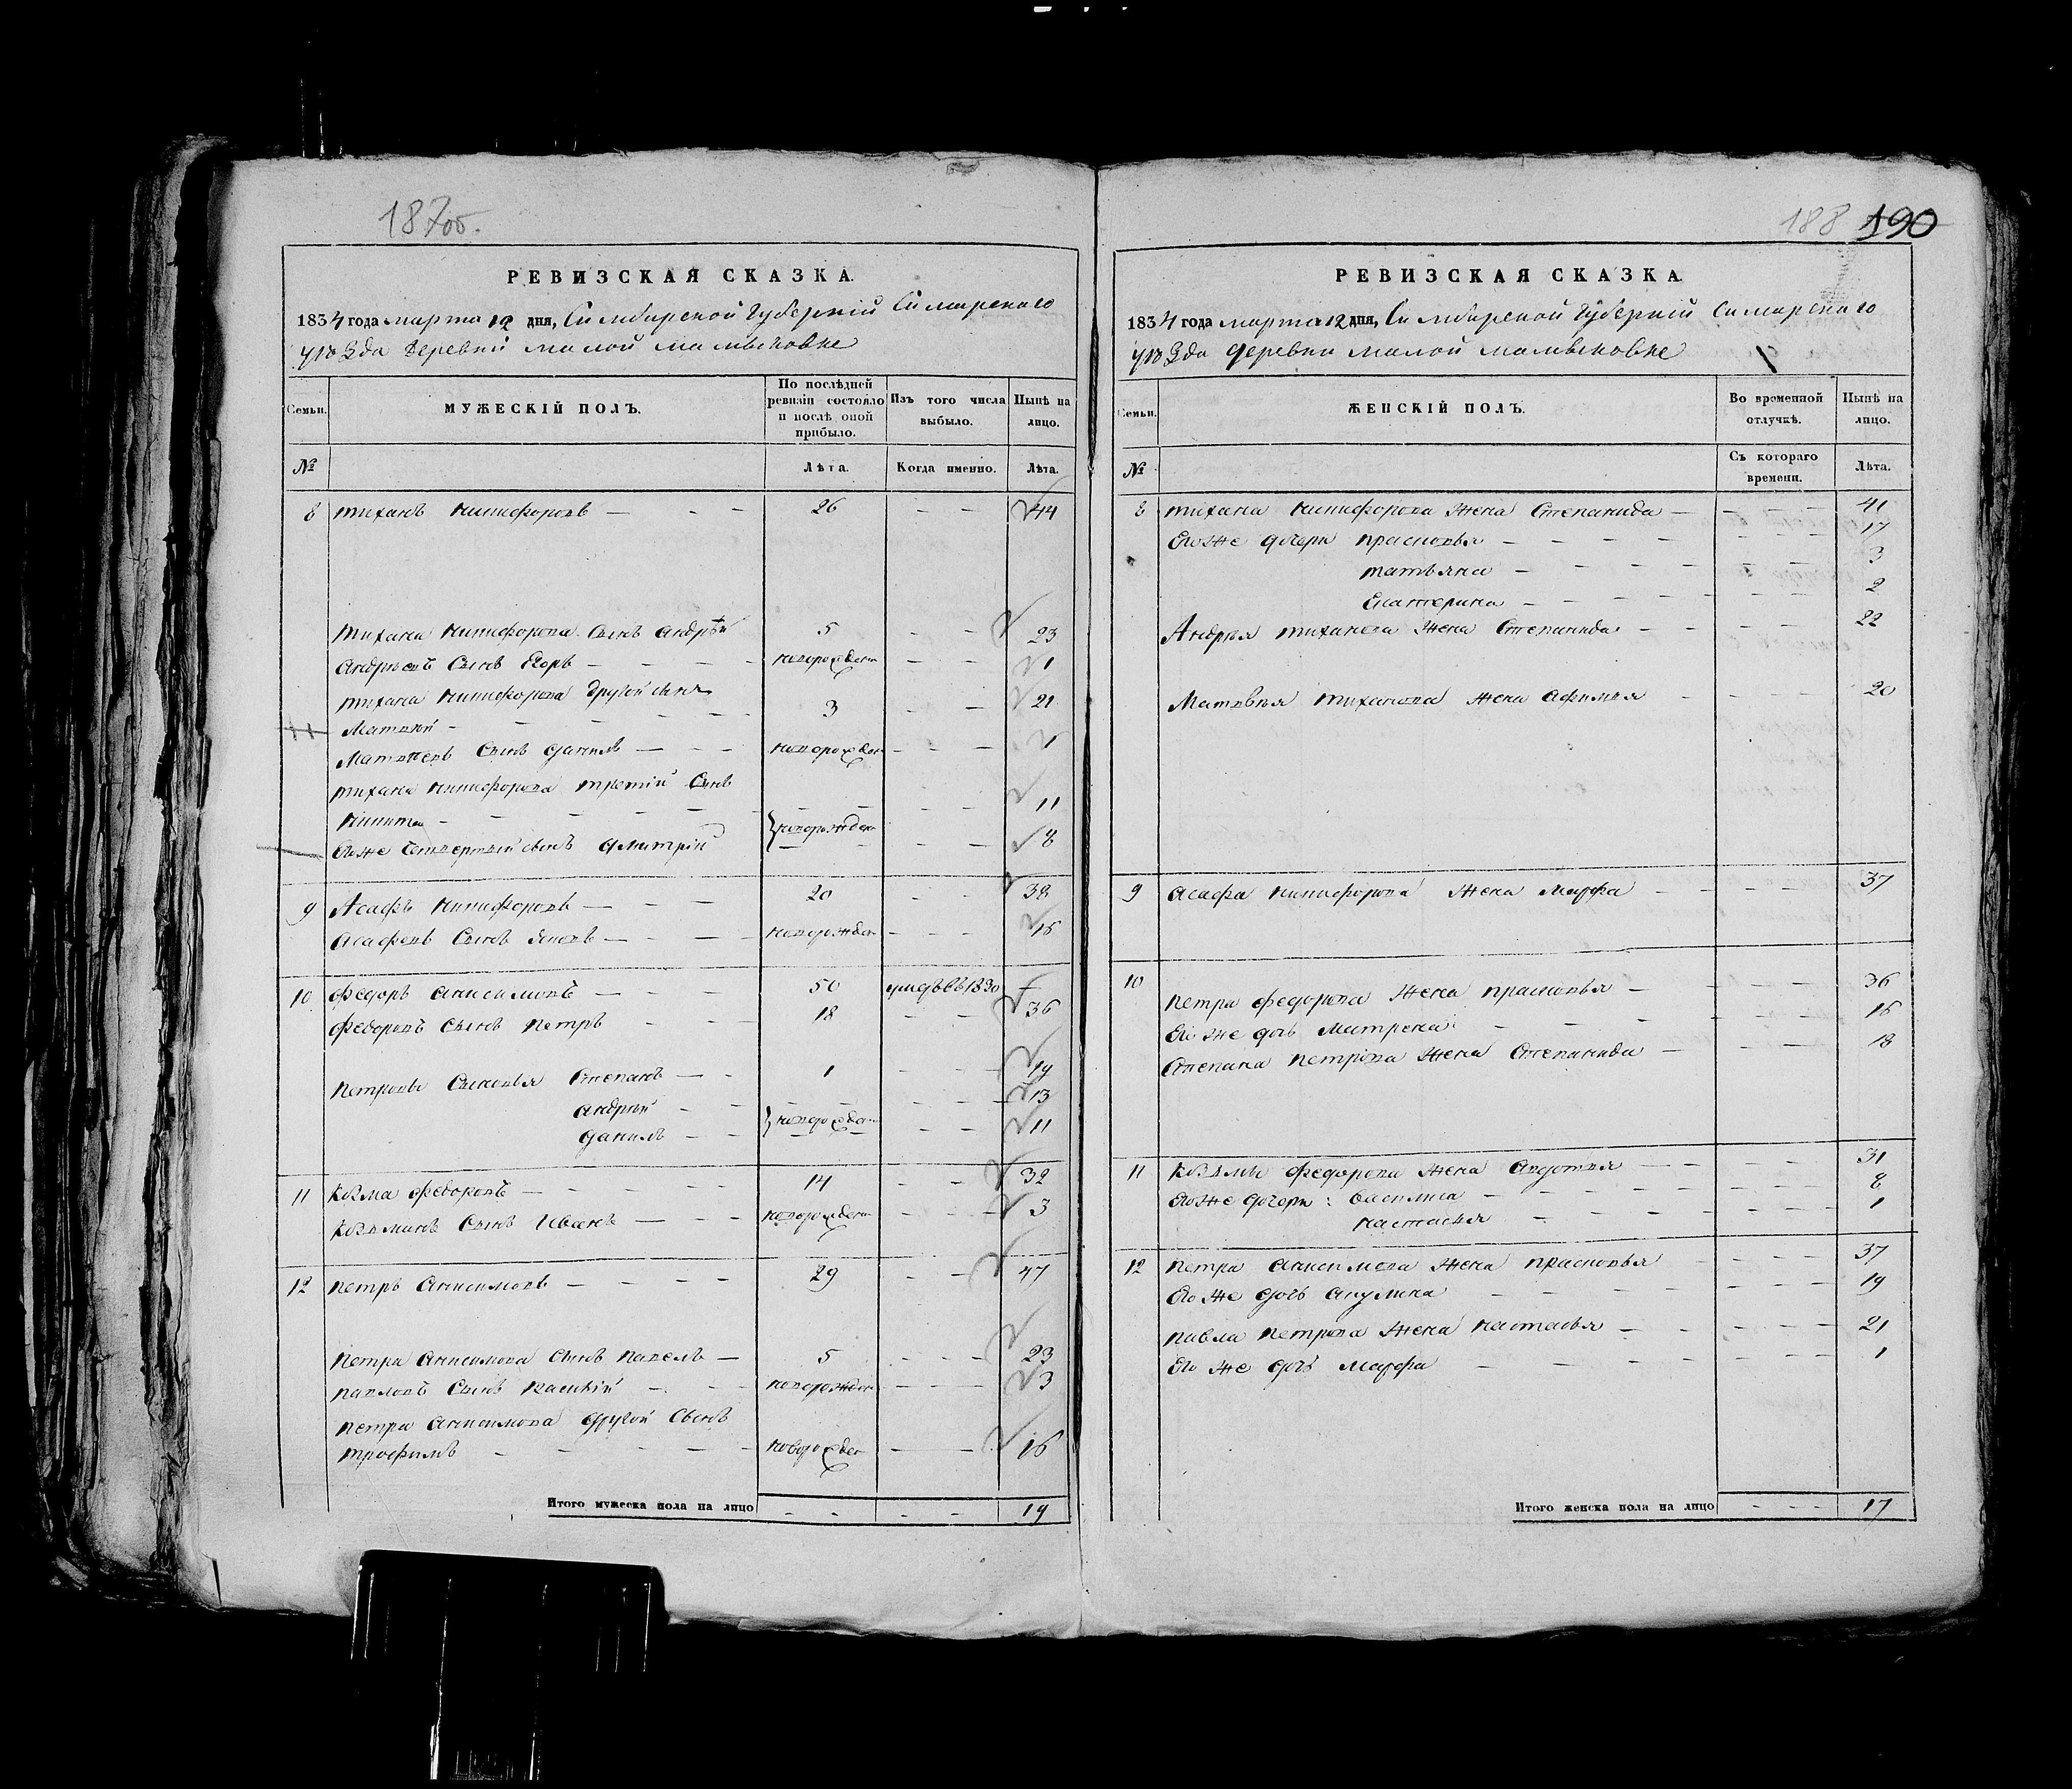 187об.
РЕВИЗСКАЯ СКАЗКА.
1834 года марта 12 дня, Симбирской Губерніи
уѣзда деревни малой
Семьи.
МУЖЕСКІЙ ПОЛЪ.
По послѣдней ревизіи состояло и послѣ оной прибыло.
Изъ того числа выбыло.
Нынѣ на лицо.
№
Лѣта.
Когда именно.
Лѣта.
8 тиханъ никифоровъ — - - 26 - - 44
тихана никифорова сынъ андрѣй 5 - - 23
андрѣевъ сынъ Егоръ — - - - новорожден - - 1
тихана никифорова другой сынъ
Матвѣй - - - - - 3 - - 21
Матвѣевъ сынъ данилъ — - - новорожден - - - 1
тихана никифорова третій сынъ
никита - - - - - - - 11
Егоже четвертый сынъ дмитрій } новорожден - - 8
9 Асафъ никифоровъ — - — 20 - - 38
асафевъ сынъ — - — новорожден - - - 16
10 федоръ анисимовъ — - — 50 умеръ въ 1830 —
федоровъ сынъ петръ - - - 18 - - 36
петровы сыновья Степанъ — - 1 - - - 19
андрѣй - - - - - 13
данилъ - - } новорожден - - 11
11 козма федоровъ — - - - 14 - - 32
козьминъ сынъ Иванъ — - - новорожден - - - 3
12 петръ анисимовъ — - - - 29 - - 47
петра анисимова сынъ павелъ — 5 - - - 23
павловъ сынъ - - - новорожден - - - 3
петра анисимова другой сынъ
трофимъ - - - - - новорожден — - 16
Итого мужеска пола на лицо - - - - 19
188 190
РЕВИЗСКАЯ СКАЗКА
1834 года марта 12 дня, Симбирской Губерніи
уѣзда деревни малой
Семьи.
ЖЕНСКІЙ ПОЛЪ.
Во временной отлучкѣ.
Нынѣ на лицо.
№
Съ котораго времени.
Лѣта.
8 тихана никифорова жена Степанида — - - - 41
Егоже дочери прасковья - - - - - - - 17
татьяна - - - - - - - 3
Екатерина - - - - - - - 2
Андрѣя тиханова жена Степанида - - - - - 22
Матвѣя тиханова жена афимья - - - - 20
9 асафа никифорова жена Марфа - - - - - 37
10 петра федорова жена прасковья - - - - 36
Его же дочь Матрена - - - - - - 16
Степана петрова жена Степанида — - - 18
11 козьмы федорова жена авдотья - - - - 31
Егоже дочери: василиса - - - - - - - 8
настасья - - - - - - - 1
12 петра анисимова жена прасковья - - - - 37
Его же дочь акулина - - - - - - - 19
павла петрова жена настасья — - - - - 21
Его же дочь марфа - - - - - - - 1
Итого женска пола на лицо - - - 17